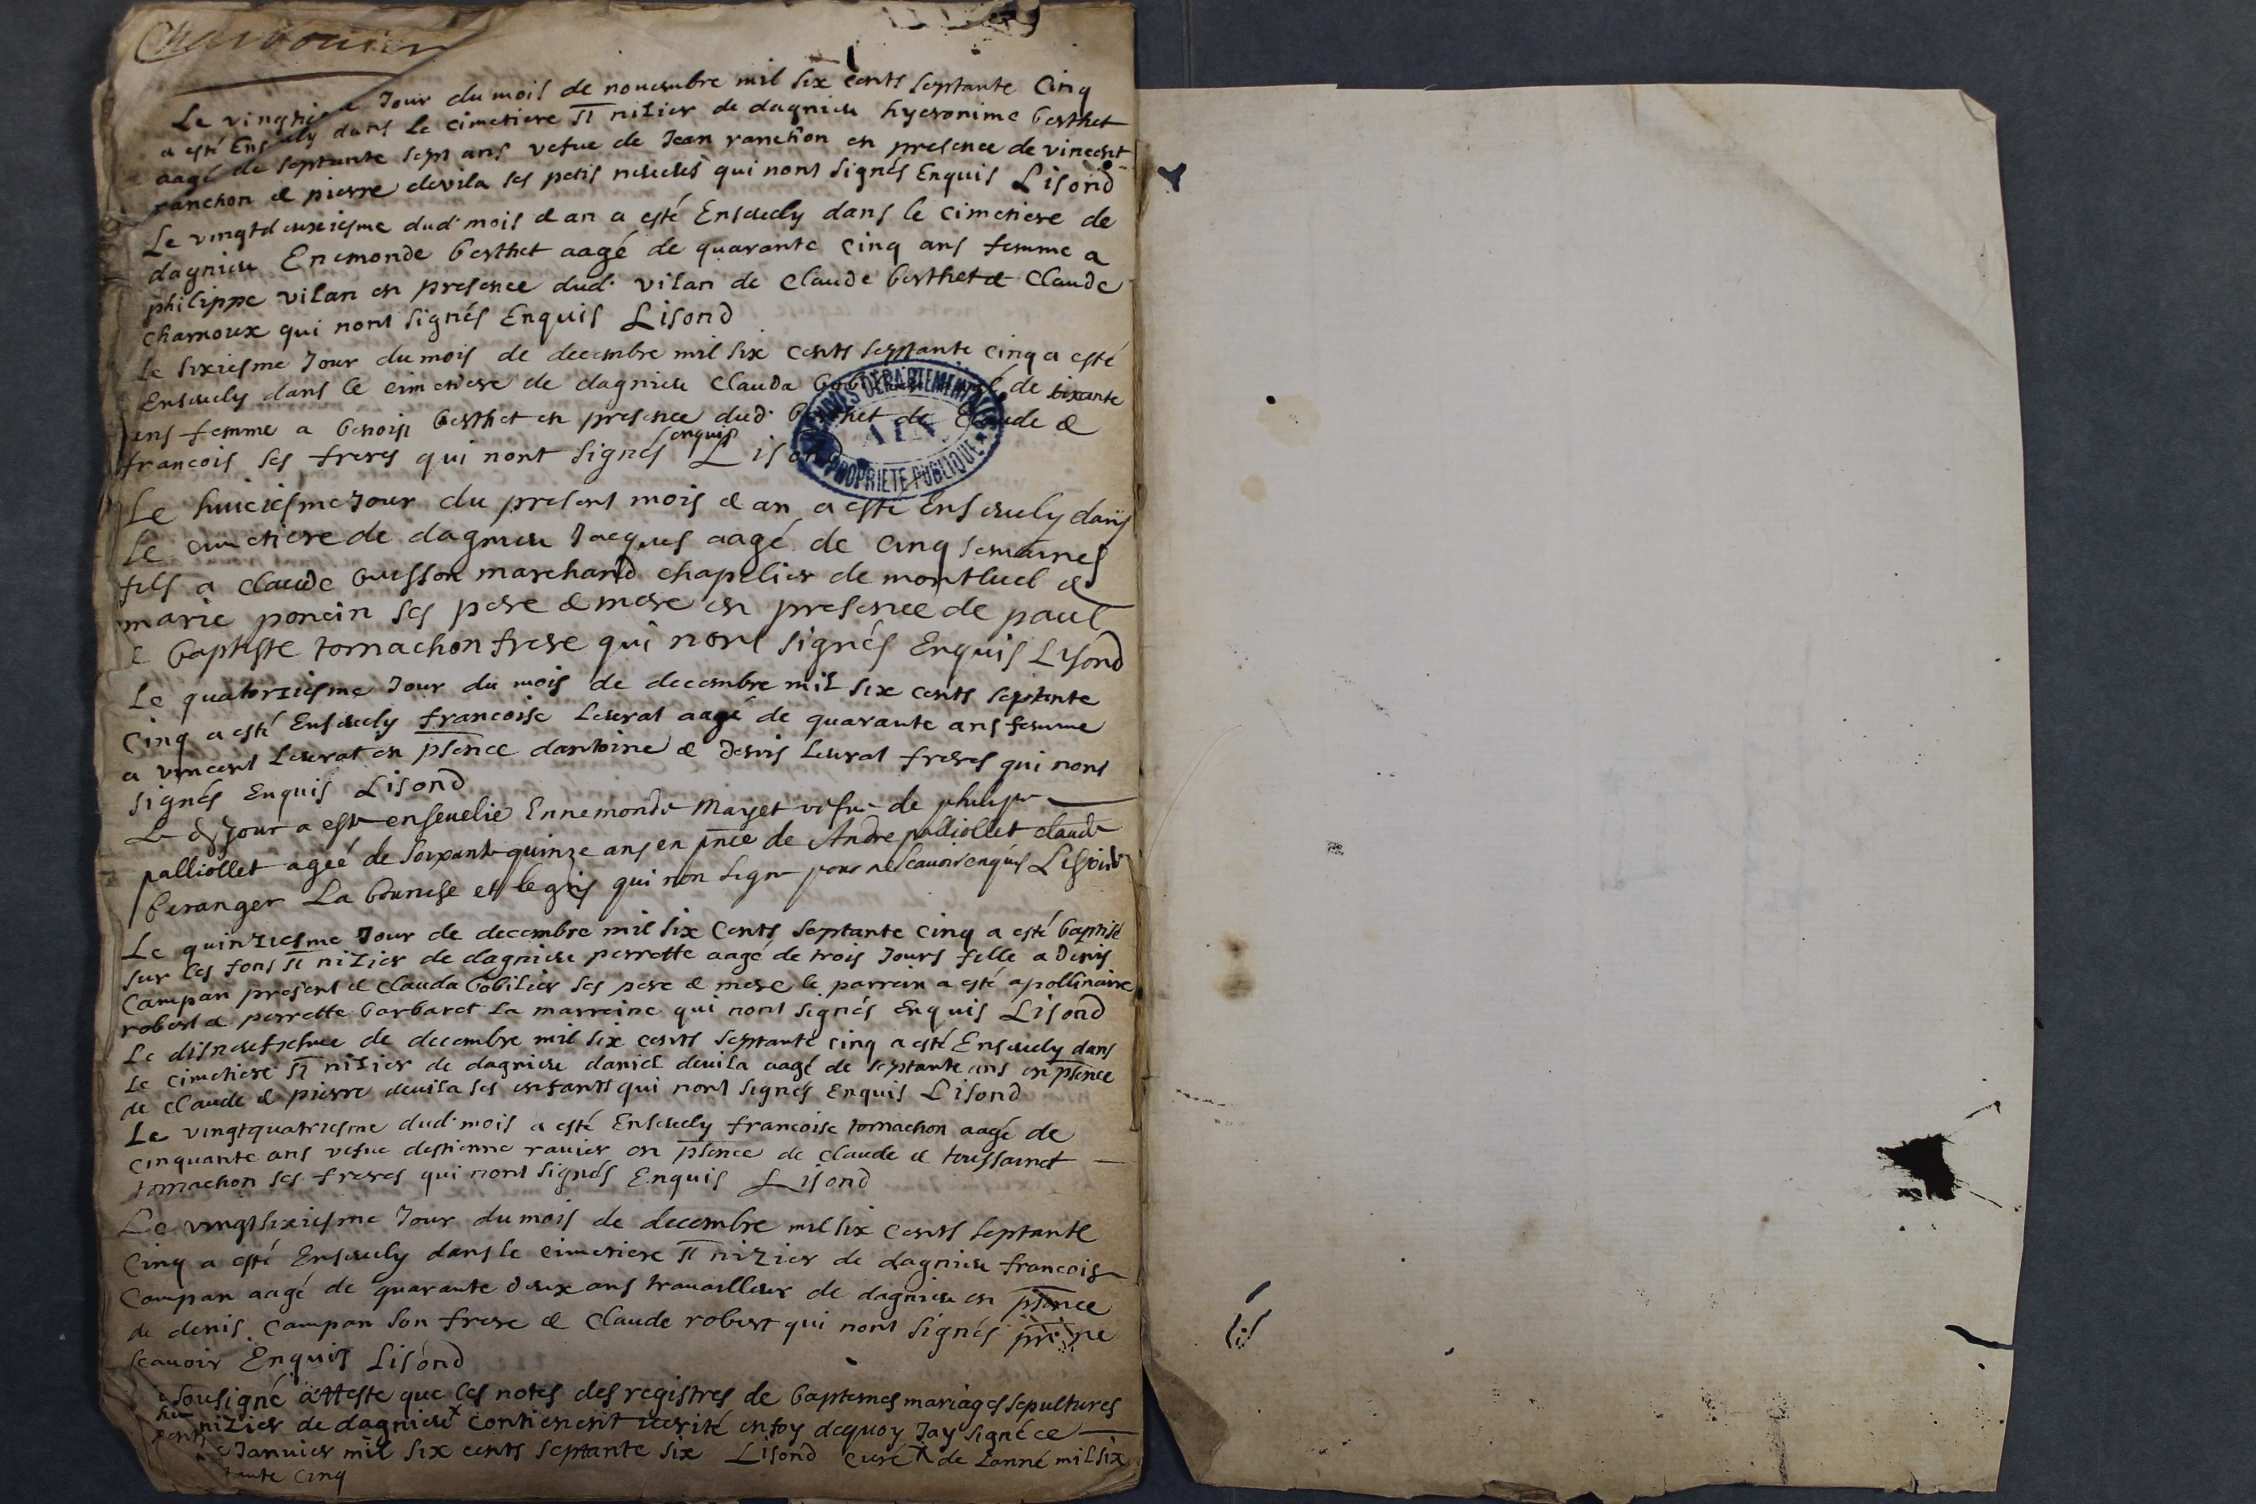 Charbonier
Le vingti Jour du mois de nouembre mil six cents septante Cinq
a esté Ens uely dans Le cimetiere st nizier de dagnieu hyeronime berthet
aagé de septante sept ans vefue de Jean ranchon en presence de vincent
ranchon & pierre devila ses petis neueus qui nont signés Enquis Lisond
Le vingtdeuxiesme dud. mois & an a esté Enseuely dans le cimetiere de
dagnieu Enemonde berthet aagé de quarante cinq ans femme a
philippe vilan en presence dud. vilan de Claude berthet & Claude
charnoux qui nont signés Enquis Lisond
Le sixiesme Jour du mois de decembre mil six cents septante cinq a esté
Enseuely dans le cimetiere de dagnieu Clauda de sixante
ans femme a benoist berthet en presence dud. berthet de Claude &
francois ses freres qui nont signés enquis Lisond
ARCHIVES DÉPARTEMENTALES
AIN
PROPRIÉTÉ PUBLIQUE
Le huiciesme Jour du present mois & an a esté Enseuely dans
Le cimetiere de dagnieu Jacques aagé de cinq semaines
fils a Claude buisson marchand chapelier de montluel &
marie poncin ses pere & mere en presence de paul
& baptiste tornachon frere qui nont signés Enquis Lisond
Le quatorziesme Jour du mois de decembre mil six cents septante
Cinq a esté Enseuely francoise Leurat aagé de quarante ans femme
a vincent Leurat en psence dantoine & denis Leurat freres qui nont
signés Enquis Lisond
Le dt Jour a este enseuelie Ennemonde Marjet vefue de philipe
palliollet ageé de soixante quinze ans en pnce de Andre palliollet claude
beranger La bourse et legris qui non signe pour ne scauoir enquis Lisond
Le quinziesme Jour de decembre mil six Cents septante Cinq a esté baptisé
sur les fons st nizier de dagnieu perrette aagé de trois Jours fille a denis
Campan present & Clauda bobilier ses pere & mere le parrein a esté apollinaire
robert & perrette barbaret La marreine qui nont signés Enquis Lisond
Le disneufiesme de decembre mil six cents septante cinq a esté Enseuely dans
Le cimetiere st nizier de dagnieu daniel deuila aagé de septante ans en psence
de Claude & pierre deuila ses enfants qui nont signés Enquis Lisond
Le vingtquatriesme dud. mois a esté Enseuely francoise tornachon aagé de
cinquante ans vefue destienne rauier en psence de Claude & toussainct
tornachon ses freres qui nont signés Enquis Lisond
Le vingtsixiesme Jour du mois de decembre mil six Cents septante
Cinq a esté Enseuely dans le cimetiere st nizier de dagnieu francois
Campan aagé de quarante deux ans trauailleur de dagnieu en psence
de denis Campan son frere & Claude robert qui nont signés pr ne
scauoir Enquis Lisond
sousigné atteste que les notes des registres de baptemes mariages sepultures
nizier de dagnieu x contienent uerité en foy dequoy Jay signé ce
Januier mil six cents septante six Lisond curé x de Lanné mil six
tante cinq